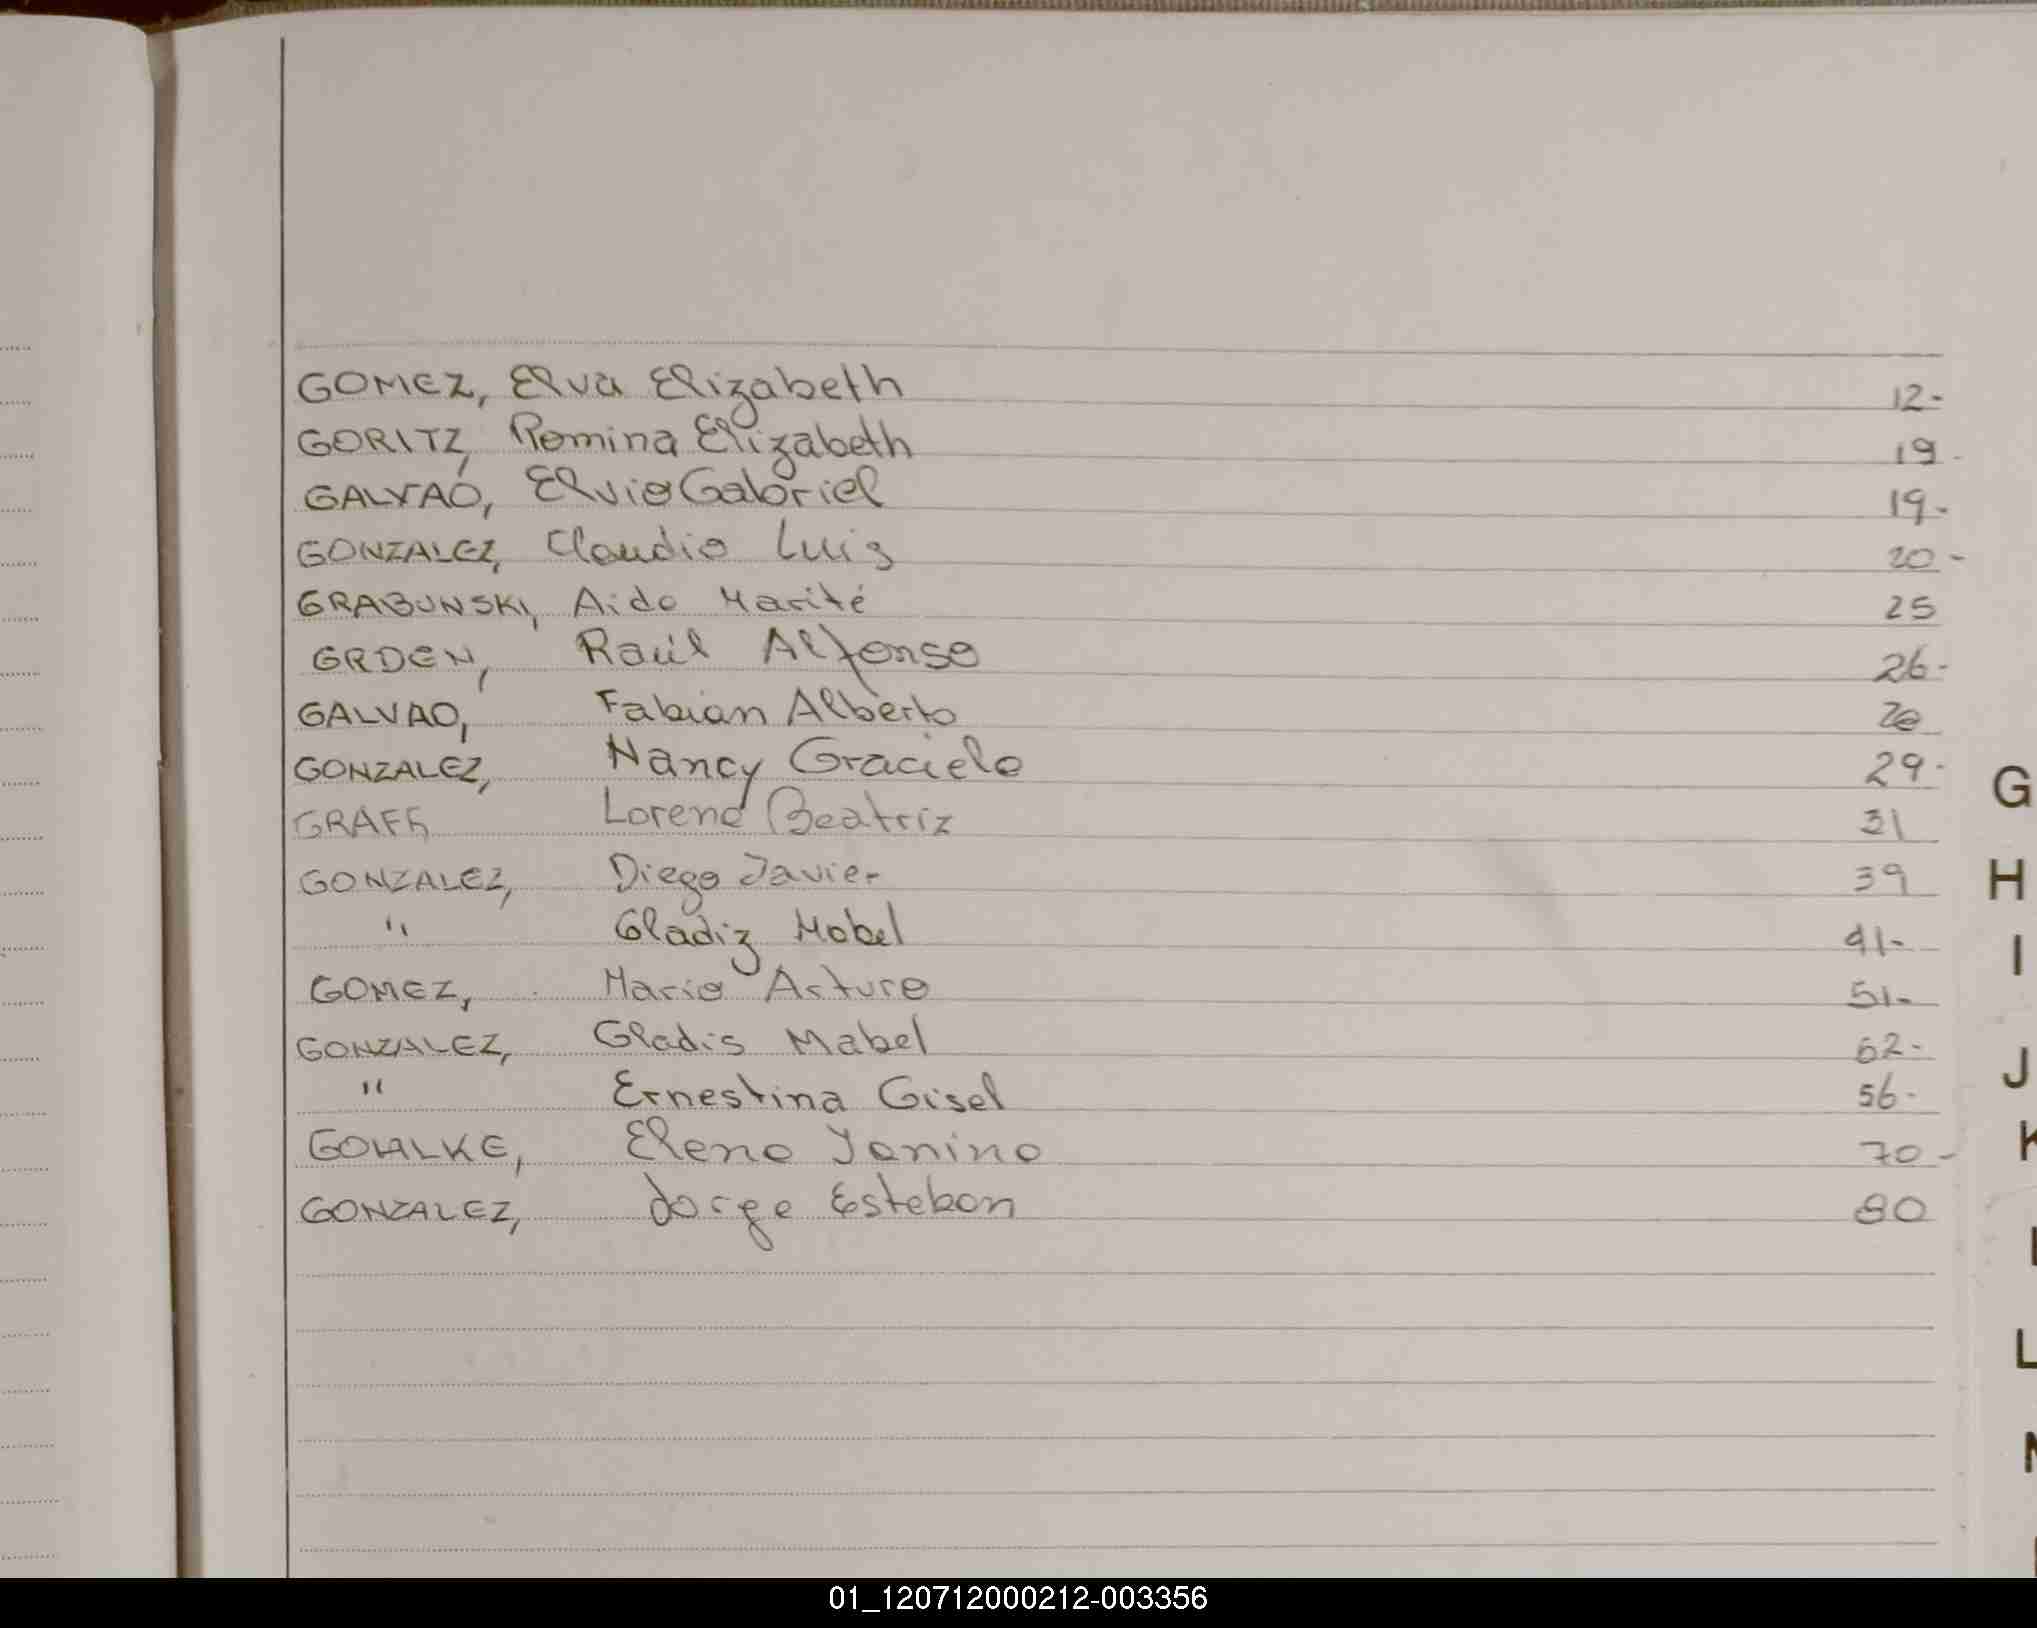 GOMEZ, Elva Elizabeth 12-
GORITZ, Romina Elizabeth 19-
GALVAO, Elvio Gabriel 19-
GONZALEZ, Claudio Luis 20-
GRABUNSKI, Aida Marité 25
GRDEN, Raúl Alfonso 26-
GALVAO, Fabian Alberto
GONZALEZ, Nancy Graciela 29-
GRAFF, Lorena Beatriz 31
GONZALEZ, Diego Javier 39
" Gladiz Mabel 41-
GOMEZ, Mario Arturo 51-
GONZALEZ, Gladis Mabel 52-
" Ernestina Gisel 56-
Elena Yanina 70-
GONZALEZ, Jorge Esteban 80
G
H
I
J
K
L
01_120712000212-003356